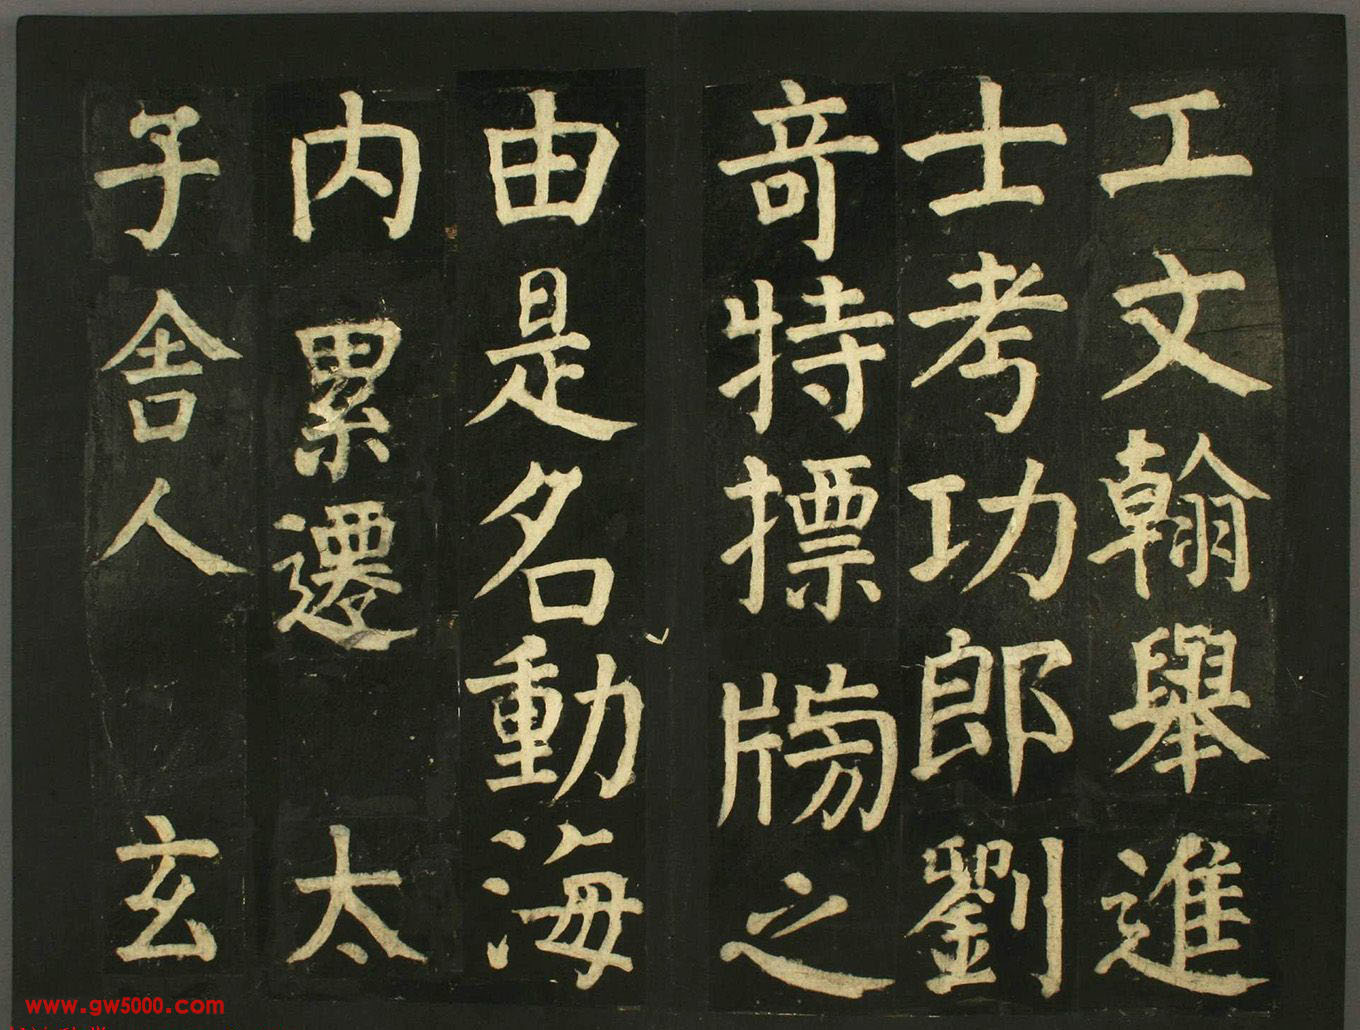 工文翰舉進
士考功郎劉
竒特摽牓之
由是名動海
内累遷太
子舍人玄
www.gw5000.com